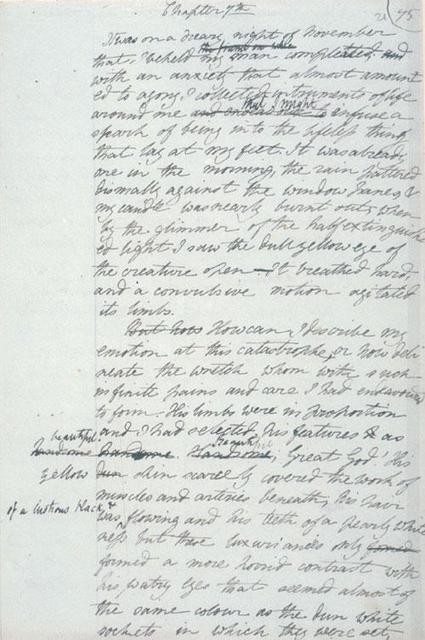 Chapter 7th
75
It was on a dreary night of November
that I beheld my man compleated and
with an anxiety that almost amount
ed to agony I collected instruments of life
around me that I might infuse a
spark of being into the lifeless thing
that lay at my feet. It was already
one in the morning, the rain pattered
dismally against the window panes &
my candle was nearly burnt out, when
by the glimmer of the half extinguish
ed light I saw the dull yellow eye of
the creature open — It breathed hard,
and a convulsive motion agitated
its limbs.
But how How can I describe my
emotion at this catastrophe, or how deli
neate the wretch whom with such
infinite pains and care I had endeavoured
to form. His limbs were in proportion
and I had selected his features as
beautiful handsome handsome. Handsome, Great God! His
yellow dun skin scarcely covered the work of
muscles and arteries beneath; his hair
of a lustrous black, & was flowing and his teeth of a pearly white
ness but these luxuriances only formed
formed a more horrid contrast with
his watry eyes that seemed almost of
the same colour as the dun white
sockets in which they were set,